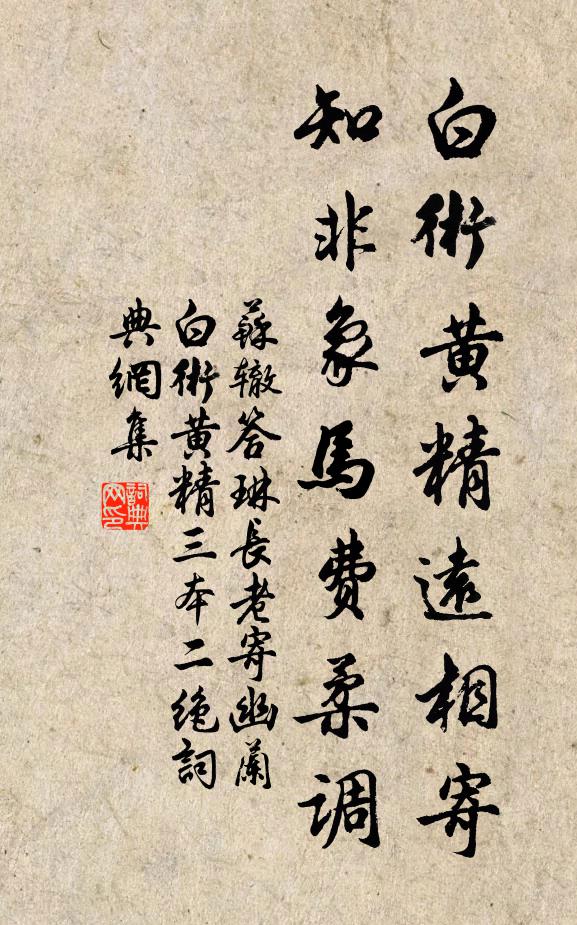 白術黄精遠相寄
知非象馬費柔調
蘇辙答琳長老寄幽蘭
白術黄精三本二绝詞
典網集
詞典
网印